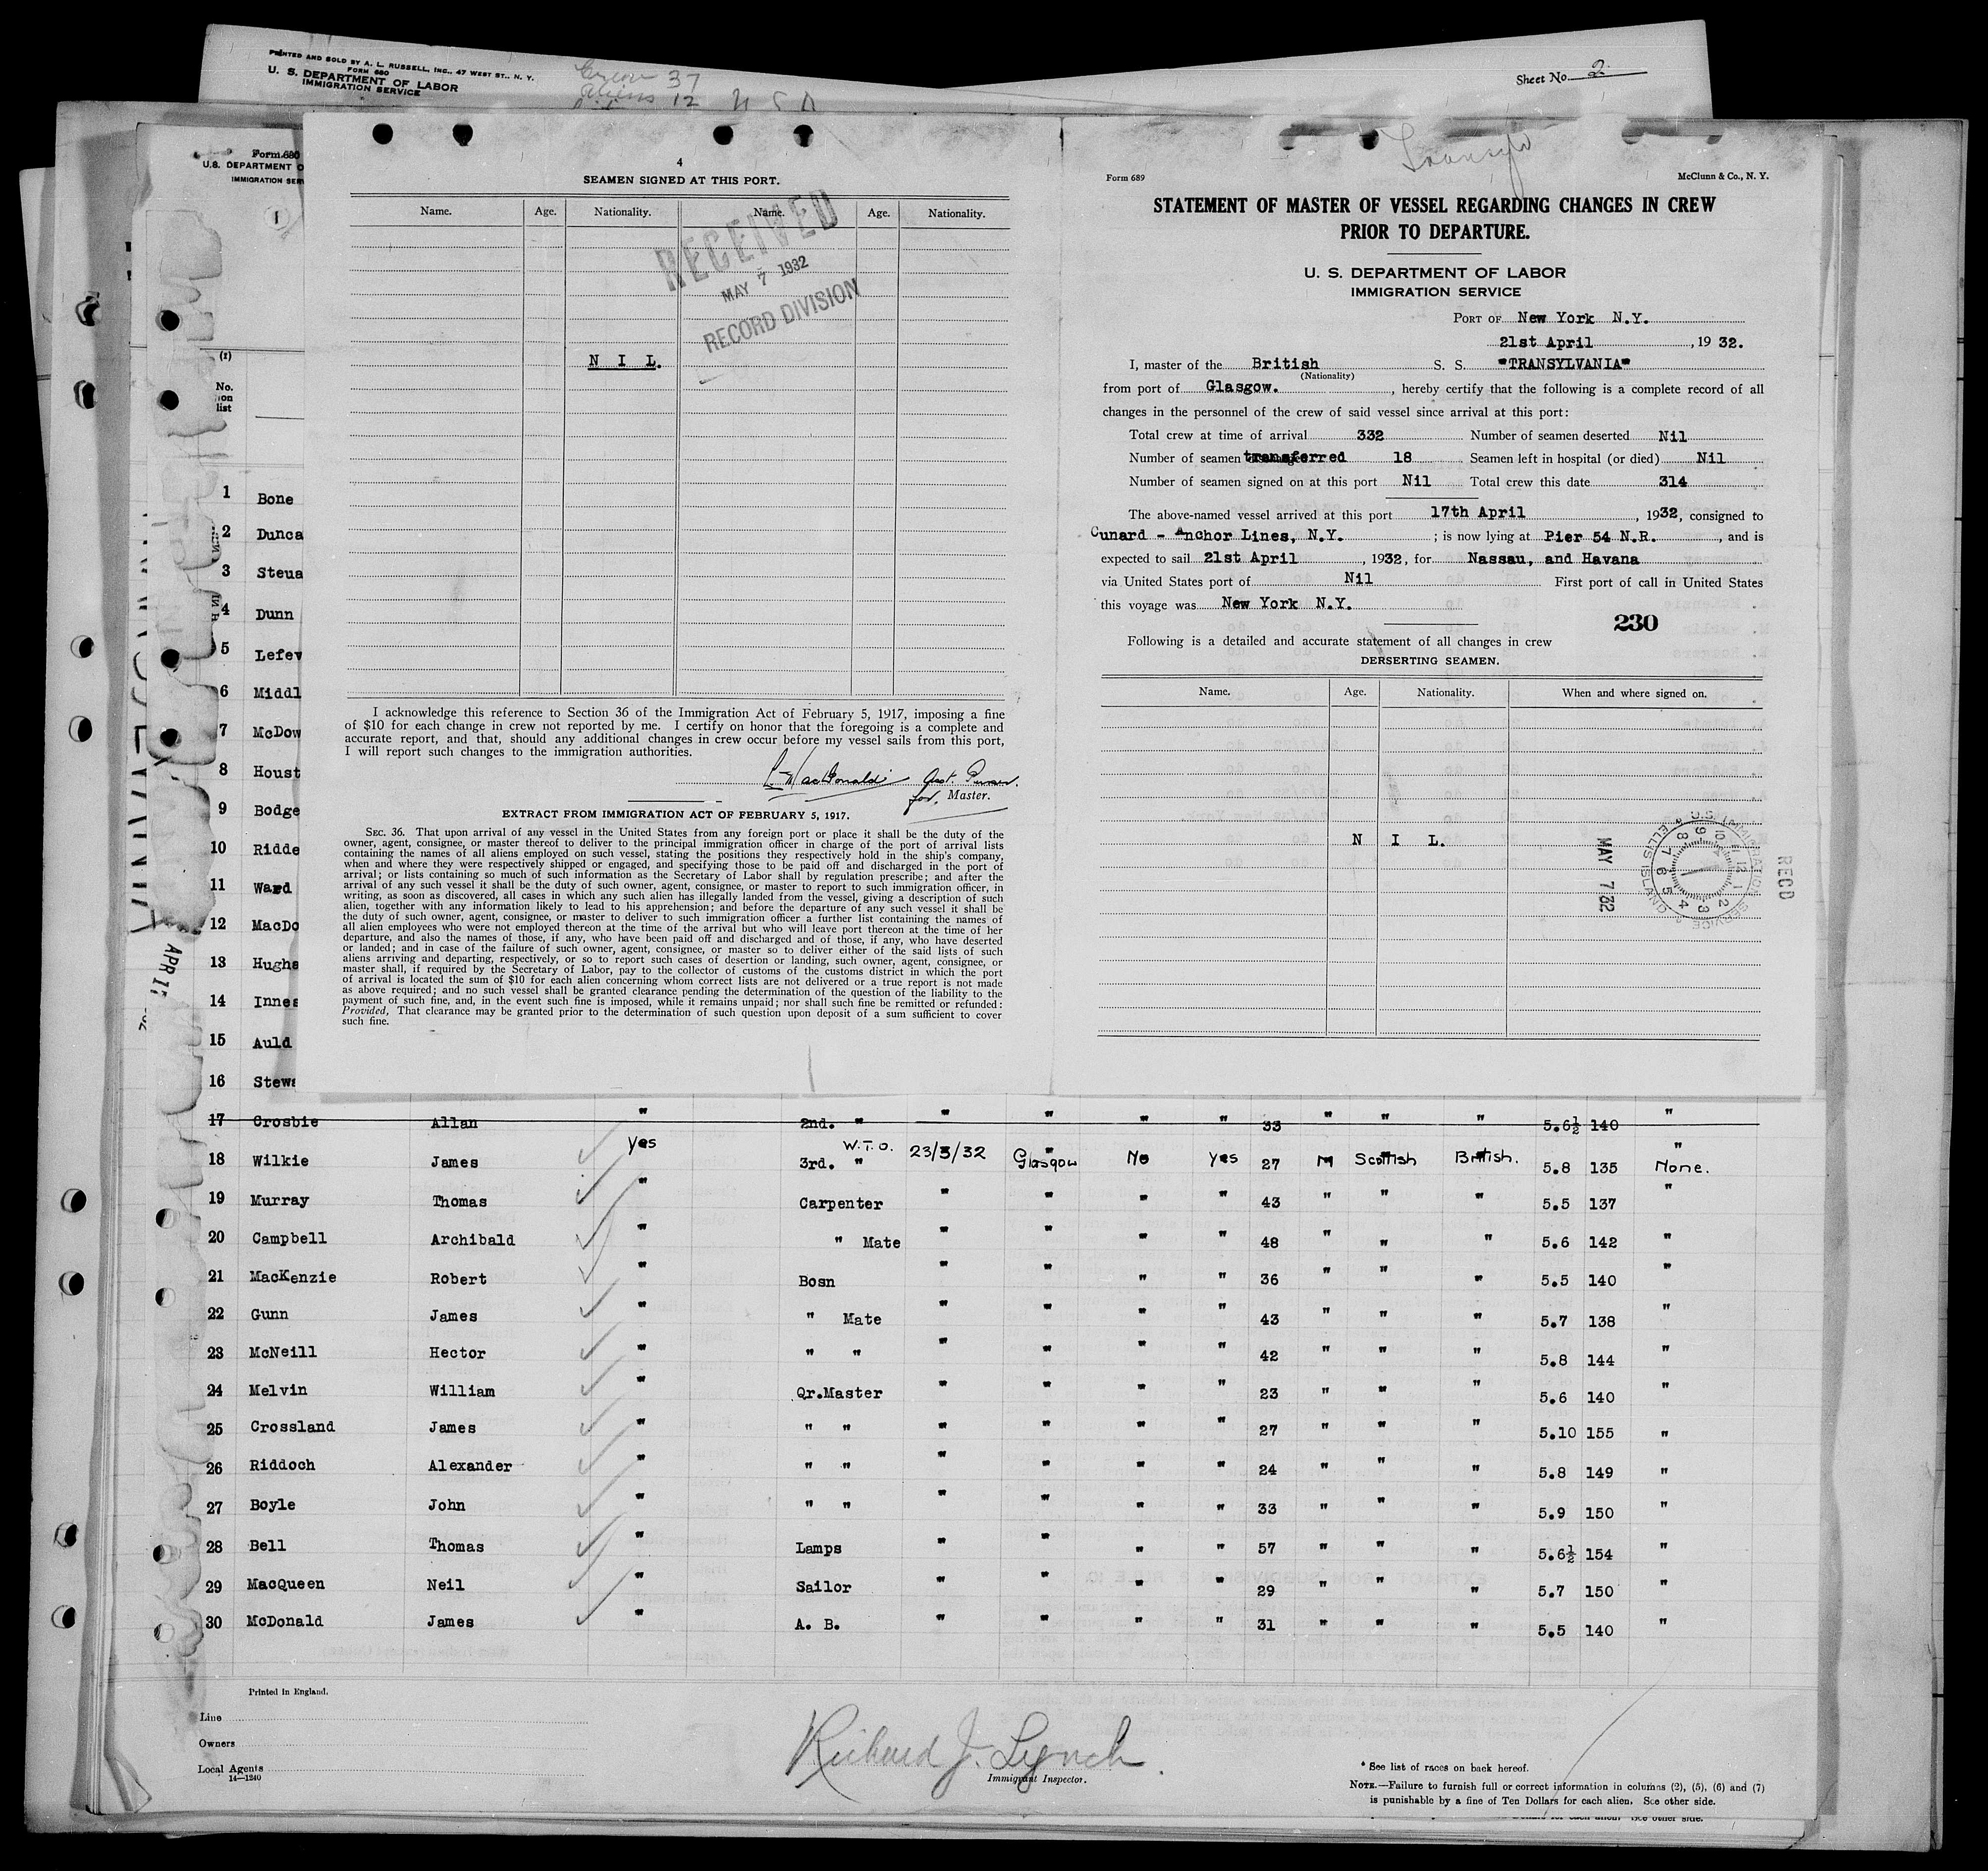 PRINTED AND SOLD BY A. L. RUSSELL, INC., 47 WEST ST., N. Y.
FORM 680
U. S. DEPARTMENT OF LABOR
IMMIGRATION SERVICE
37
aliens 12 U S A
Sheet No. 2
Form 680
U.S. DEPARTMENT O
IMMIGRATION SER
4
SEAMEN SIGNED AT THIS PORT.
Name. Age. Nationality. Name. Age. Nationality.
RECEIVED
MAY 7 1932
RECORD DIVISION
N I L.
I acknowledge this reference to Section 36 of the Immigration Act of February 5, 1917, imposing a fine
of $10 for each change in crew not reported by me. I certify on honor that the foregoing is a complete and
accurate report, and that, should any additional changes in crew occur before my vessel sails from this port,
I will report such changes to the immigration authorities.
MacDonald Asst. Purser.
for. Master.
EXTRACT FROM IMMIGRATION ACT OF FEBRUARY 5, 1917.
SEC. 36. That upon arrival of any vessel in the United States from any foreign port or place it shall be the duty of the
owner, agent, consignee, or master thereof to deliver to the principal immigration officer in charge of the port of arrival lists
containing the names of all aliens employed on such vessel, stating the positions they respectively hold in the ship's company,
when and where they were respectively shipped or engaged, and specifying those to be paid off and discharged in the port of
arrival; or lists containing so much of such information as the Secretary of Labor shall by regulation prescribe; and after the
arrival of any such vessel it shall be the duty of such owner, agent, consignee, or master to report to such immigration officer, in
writing, as soon as discovered, all cases in which any such alien has illegally landed from the vessel, giving a description of such
alien, together with any information likely to lead to his apprehension; and before the departure of any such vessel it shall be
the duty of such owner, agent, consignee, or master to deliver to such immigration officer a further list containing the names of
all alien employees who were not employed thereon at the time of the arrival but who will leave port thereon at the time of her
departure, and also the names of those, if any, who have been paid off and discharged and of those, if any, who have deserted
or landed; and in case of the failure of such owner, agent, consignee, or master so to deliver either of the said lists of such
aliens arriving and departing, respectively, or so to report such cases of desertion or landing, such owner, agent, consignee, or
master shall, if required by the Secretary of Labor, pay to the collector of customs of the customs district in which the port
of arrival is located the sum of $10 for each alien concerning whom correct lists are not delivered or a true report is not made
as above required; and no such vessel shall be granted clearance pending the determination of the question of the liability to the
payment of such fine, and, in the event such fine is imposed, while it remains unpaid; nor shall such fine be remitted or refunded:
Provided, That clearance may be granted prior to the determination of such question upon deposit of a sum sufficient to cover
such fine.
Form 689 McClunn & Co., N. Y.
STATEMENT OF MASTER OF VESSEL REGARDING CHANGES IN CREW
PRIOR TO DEPARTURE.
U. S. DEPARTMENT OF LABOR
IMMIGRATION SERVICE
PORT OF New York N.Y.
21st April , 19 32.
I, master of the British S. S. "TRANSYLVANIA"
(Nationality)
from port of Glasgow. , hereby certify that the following is a complete record of all
changes in the personnel of the crew of said vessel since arrival at this port:
Total crew at time of arrival 332 Number of seamen deserted Nil
Number of seamen transferred 18 Seamen left in hospital (or died) Nil
Number of seamen signed on at this port Nil Total crew this date 314
The above-named vessel arrived at this port 17th April , 1932, consigned to
Cunard - Anchor Lines, N.Y. ; is now lying at Pier 54 N.R. , and is
expected to sail 21st April , 1932, for Nassau, and Havana
via United States port of Nil First port of call in United States
this voyage was New York N.Y.
230
Following is a detailed and accurate statement of all changes in crew
DERSERTING SEAMEN.
Name. Age. Nationality. When and where signed on.
N I L.
MAY 7 '32
U.S. IMMIGRATION SERVICE ELLIS ISLAND
12 1 2 3 4 5 6 7 8 9 10 11
RECD
(1)
No.
on
list
1 Bone
2 Dunca
3 Steua
4 Dunn
5 Lefev
6 Middl
7 McDow
8 Houst
9 Bodge
10 Ridde
11 Ward
12 MacDo
13 Hughe
14 Innes
15 Auld
16 Stewa
APR 17
17 Crosbie Allan " 2nd. " " " " " 33 " " " 5.6½ 140 "
18 Wilkie James yes 3rd. " W.T.O. 23/3/32 Glasgow No Yes 27 M Scottish British. 5.8 135 None.
19 Murray Thomas " Carpenter " " " " 43 " " " 5.5 137 "
20 Campbell Archibald " " Mate " " " " 48 " " " 5.6 142 "
21 MacKenzie Robert " Bosn " " " " 36 " " " 5.5 140 "
22 Gunn James " " Mate " " " " 43 " " " 5.7 138 "
23 McNeill Hector " " " " " " " 42 " " " 5.8 144 "
24 Melvin William " Qr.Master " " " " 23 " " " 5.6 140 "
25 Crossland James " " " " " " " 27 " " " 5.10 155 "
26 Riddoch Alexander " " " " " " " 24 " " " 5.8 149 "
27 Boyle John " " " " " " " 33 " " " 5.9 150 "
28 Bell Thomas " Lamps " " " " 57 " " " 5.6½ 154 "
29 MacQueen Neil " Sailor " " " " 29 " " " 5.7 150 "
30 McDonald James " A. B. " " " " 31 " " " 5.5 140 "
Printed in England.
Line
Owners
Local Agents
14—1240
Richard J. Lynch.
Immigrant Inspector.
* See list of races on back hereof.
NOTE.—Failure to furnish full or correct information in columns (2), (5), (6) and (7)
is punishable by a fine of Ten Dollars for each alien. See other side.